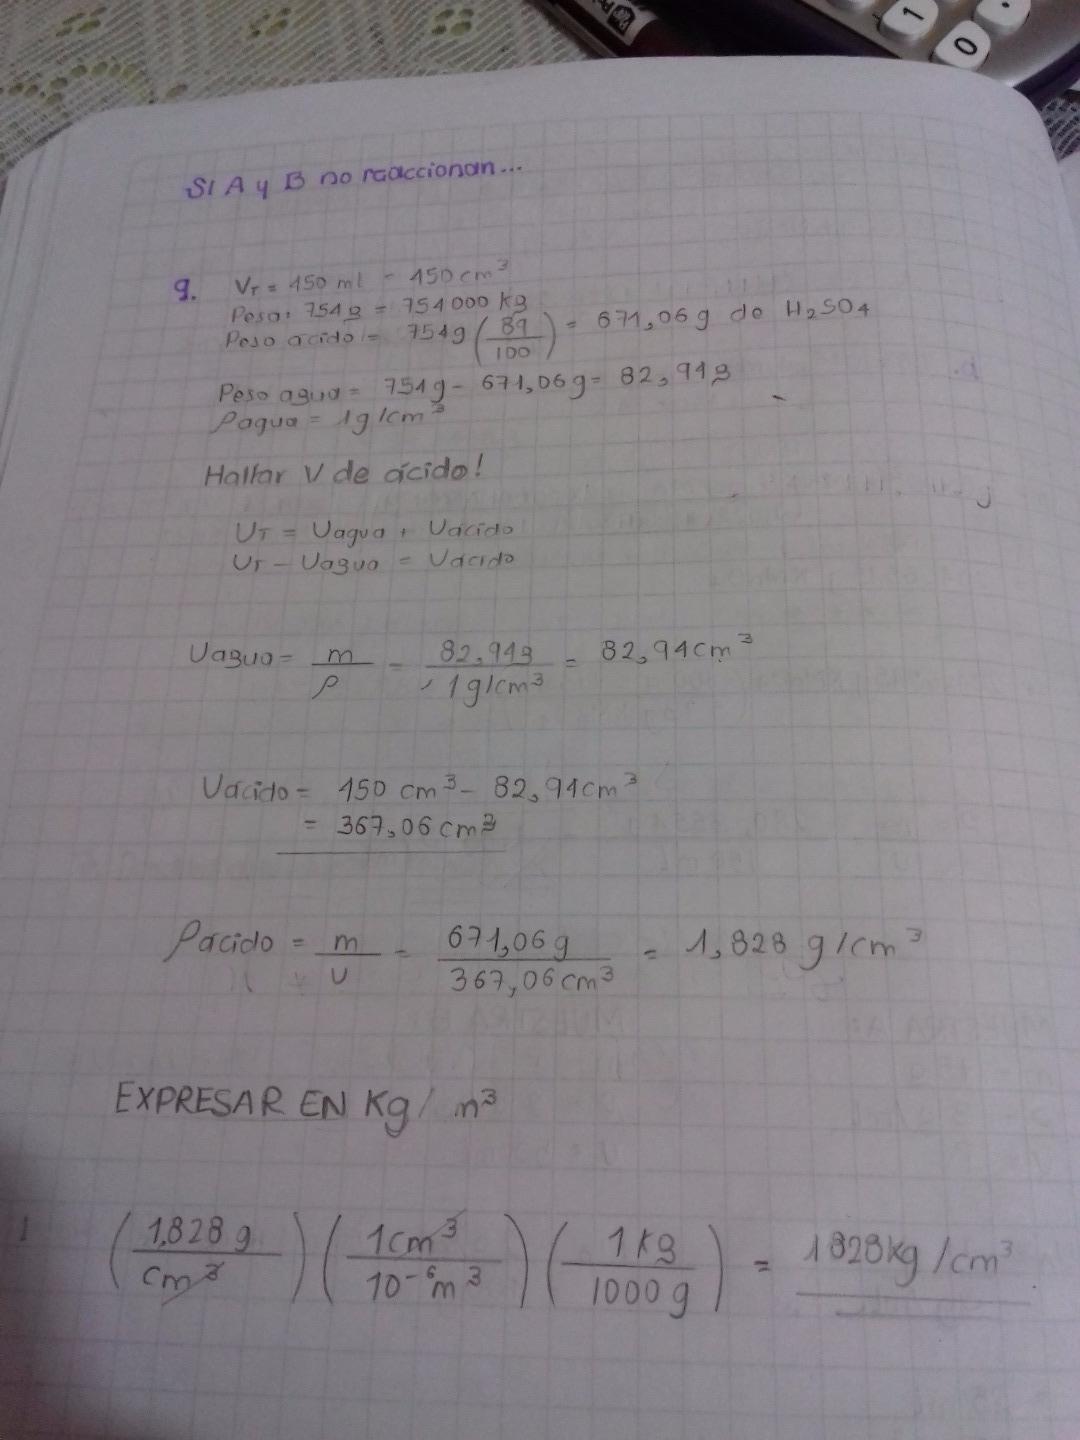 1
0
SI A y B no reaccionan...
9. VT = 450 ml - 450 cm³
Peso: 754g = 754000 kg
Peso ácido = 754g (89/100) = 671,06g de H2SO4
Peso agua = 754g - 671,06g = 82,94g
ρagua = 1g/cm³
Hallar V de ácido!
VT = Vagua + Vácido
VT - Vagua = Vácido
Vagua = m/ρ = 82,94g/1g/cm³ = 82,94cm³
Vácido = 450 cm³ - 82,94cm³
= 367,06 cm³
ρácido = m/v = 671,06g/367,06cm³ = 1,828 g/cm³
EXPRESAR EN Kg/m³
(1,828 g/cm³) (1cm³/10⁻⁶m³) (1kg/1000g) = 1828kg/cm³